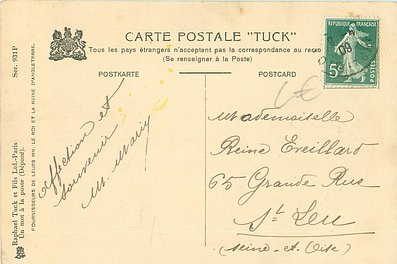 CARTE POSTALE "TUCK"
Tous les pays étrangers n'acceptent pas la correspondance au recto
(Se renseigner à la Poste)
POSTKARTE
POSTCARD
RÉPUBLIQUE FRANÇAISE
5c
POSTES
Ser. 931P
Raphael Tuck et Fils Ltd.-Paris
Un mot à la poste (Déposé).
FOURNISSEURS DE LEURS MM. LE ROI ET LA REINE D'ANGLETERRE.
affection et
souvenir
M. Mariy
Mademoiselle
Reine
65 Grande Rue
St Leu
(Seine-et-Oise)